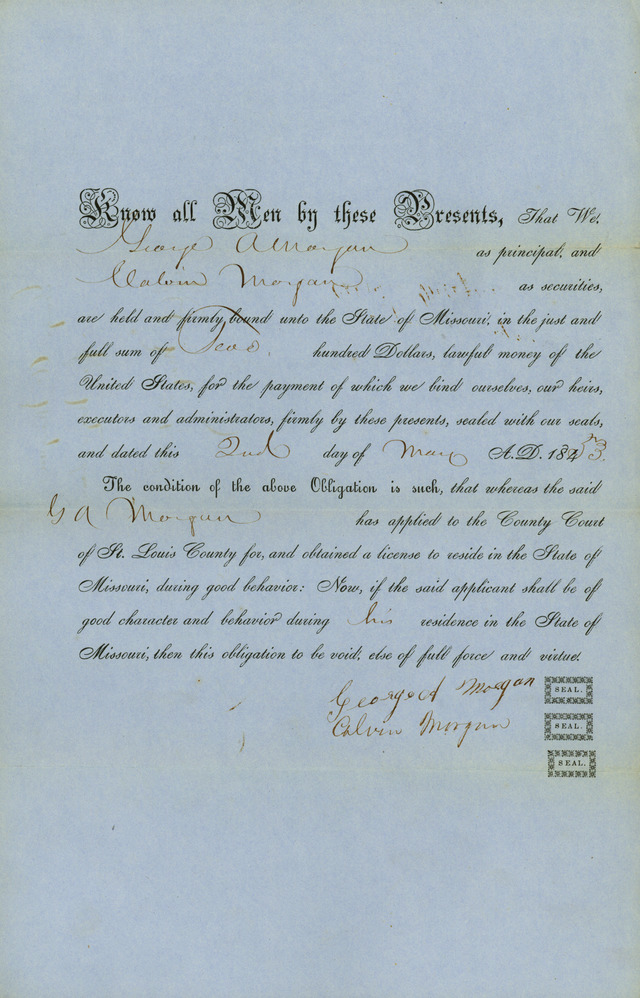 Know all Men by these Presents, That We,
George A Morgan as principal, and
Calvin Morgan as securities,
are held and firmly bound unto the State of Missouri, in the just and
full sum of hundred Dollars, lawful money of the
United States, for the payment of which we bind ourselves, our heirs,
executors and administrators, firmly by these presents, sealed with our seals,
and dated this 2nd day of May A.D. 1853.
The condition of the above Obligation is such, that whereas the said
G A Morgan has applied to the County Court
of St. Louis County for, and obtained a license to reside in the State of
Missouri, during good behavior: Now, if the said applicant shall be of
good character and behavior during his residence in the State of
Missouri, then this obligation to be void, else of full force and virtue.
George A Morgan SEAL.
Calvin Morgan SEAL.
SEAL.